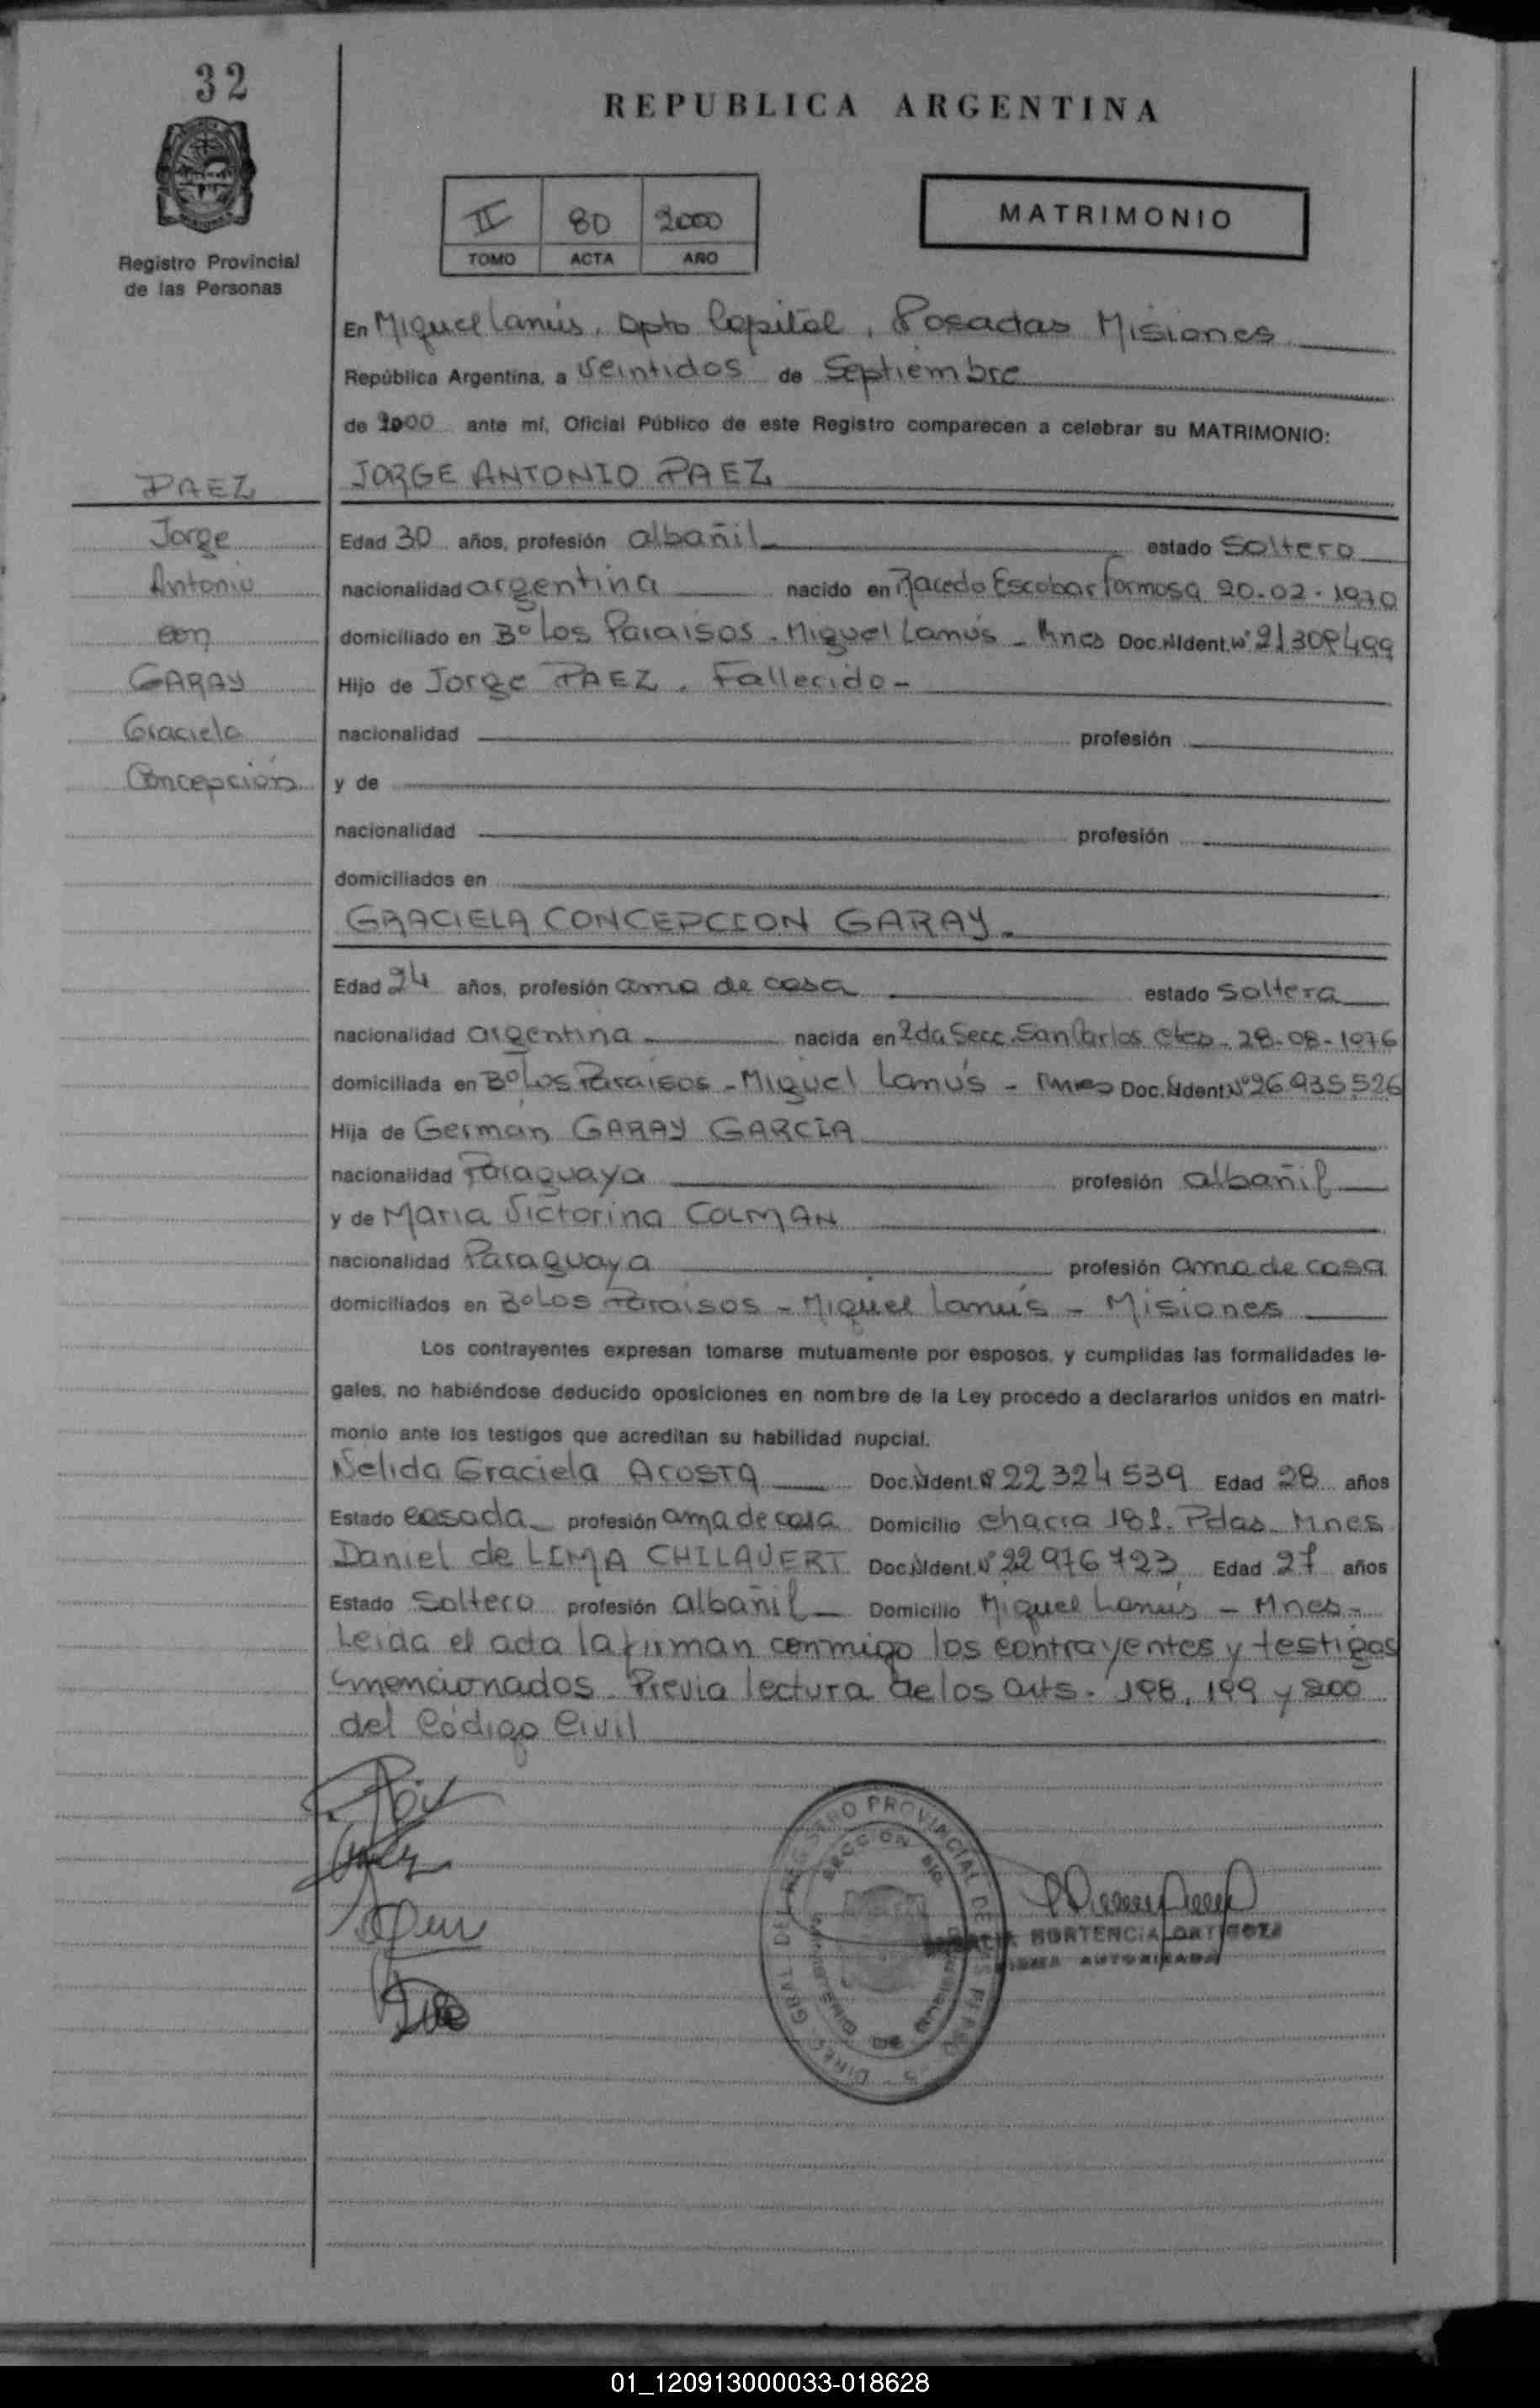 32
REPUBLICA ARGENTINA
II 80 2000
TOMO ACTA AÑO
MATRIMONIO
Registro Provincial
de las Personas
En Miguel Lanús, Dpto Capital, Posadas Misiones
República Argentina, a veintidos de Septiembre
de 2000 ante mí, Oficial Público de este Registro comparecen a celebrar su MATRIMONIO:
PAEZ
Jorge
Antonio
con
GARAY
Graciela
Concepción
JORGE ANTONIO PAEZ
Edad 30 años, profesión albañil estado Soltero
nacionalidad argentina nacido en Racedo Escobar Formosa 20-02-1970
domiciliado en Bº Los Paraisos - Miguel Lanús - Mnes Doc. Ident. Nº
Hijo de Jorge PAEZ. Fallecido -
nacionalidad profesión
y de
nacionalidad profesión
domiciliados en
GRACIELA CONCEPCION GARAY.
Edad 24 años, profesión ama de casa estado Soltera
nacionalidad argentina nacida en 2da Secc. San Carlos Ctes - 28-08-1976
domiciliada en Bº Los Paraisos - Miguel Lanús - Mnes Doc. Ident Nº 26.935.526
Hija de German GARAY GARCIA
nacionalidad Paraguaya profesión albañil
y de Maria Victorina COLMAN
nacionalidad Paraguaya profesión ama de casa
domiciliados en Bº Los Paraisos - Miguel Lanús - Misiones
Los contrayentes expresan tomarse mutuamente por esposos, y cumplidas las formalidades le-
gales, no habiéndose deducido oposiciones en nombre de la Ley procedo a declararlos unidos en matri-
monio ante los testigos que acreditan su habilidad nupcial.
Nelida Graciela ACOSTA Doc. Ident. Nº 22324539 Edad 28 años
Estado casada profesión ama de casa Domicilio chacra 181. Pdas. Mnes
Daniel de LIMA CHILAVERT Doc. Ident. Nº 22976723 Edad 27 años
Estado Soltero profesión albañil Domicilio Miguel Lanús - Mnes -
Leida el acta la firman conmigo los contrayentes y testigos
mencionados. Previa lectura de los arts. 198, 199 y 200
del Código Civil
DIREC. GRAL. DEL REGISTRO PROVINCIAL DE LAS PERSONAS
HORTENCIA ORTIGOZA
FIRMA AUTORIZADA
01_120913000033-018628